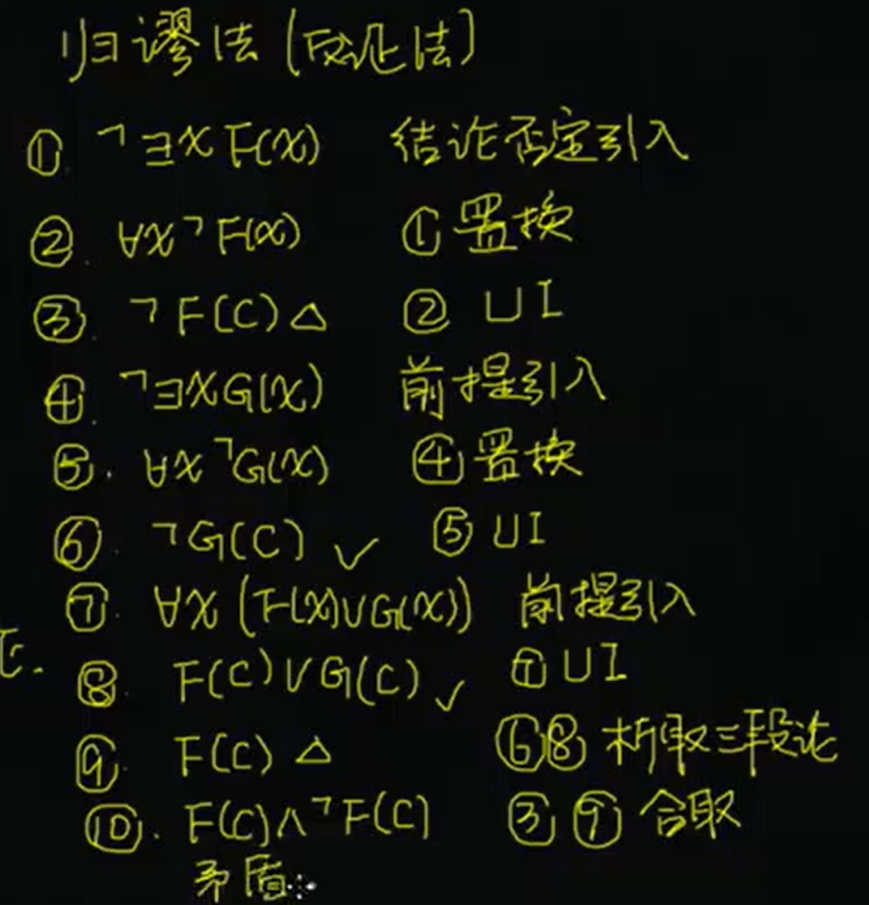 归谬法(反证法)
①. ¬∃x F(x) 结论否定引入
②. ∀x¬F(x) ①置换
③. ¬F(C)△ ② UI
④. ¬∃xG(x) 前提引入
⑤. ∀x¬G(x) ④置换
⑥. ¬G(C) ✓ ⑤ UI
⑦. ∀x(F(x)∨G(x)) 前提引入
⑧. F(C)∨G(C) ✓ ⑦UI
⑨. F(C) △ ⑥⑧ 析取三段论
⑩. F(C)∧¬F(C) ③⑨ 合取
矛盾